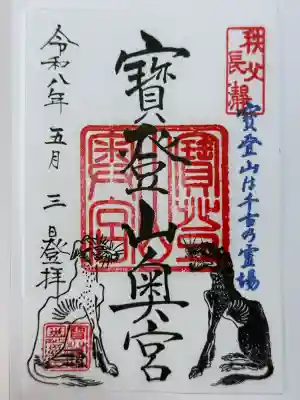 秩父
長瀞
寳登山は千古の霊場
寳登山奥宮
寳登山
奥宮
令和八年五月三日登拝